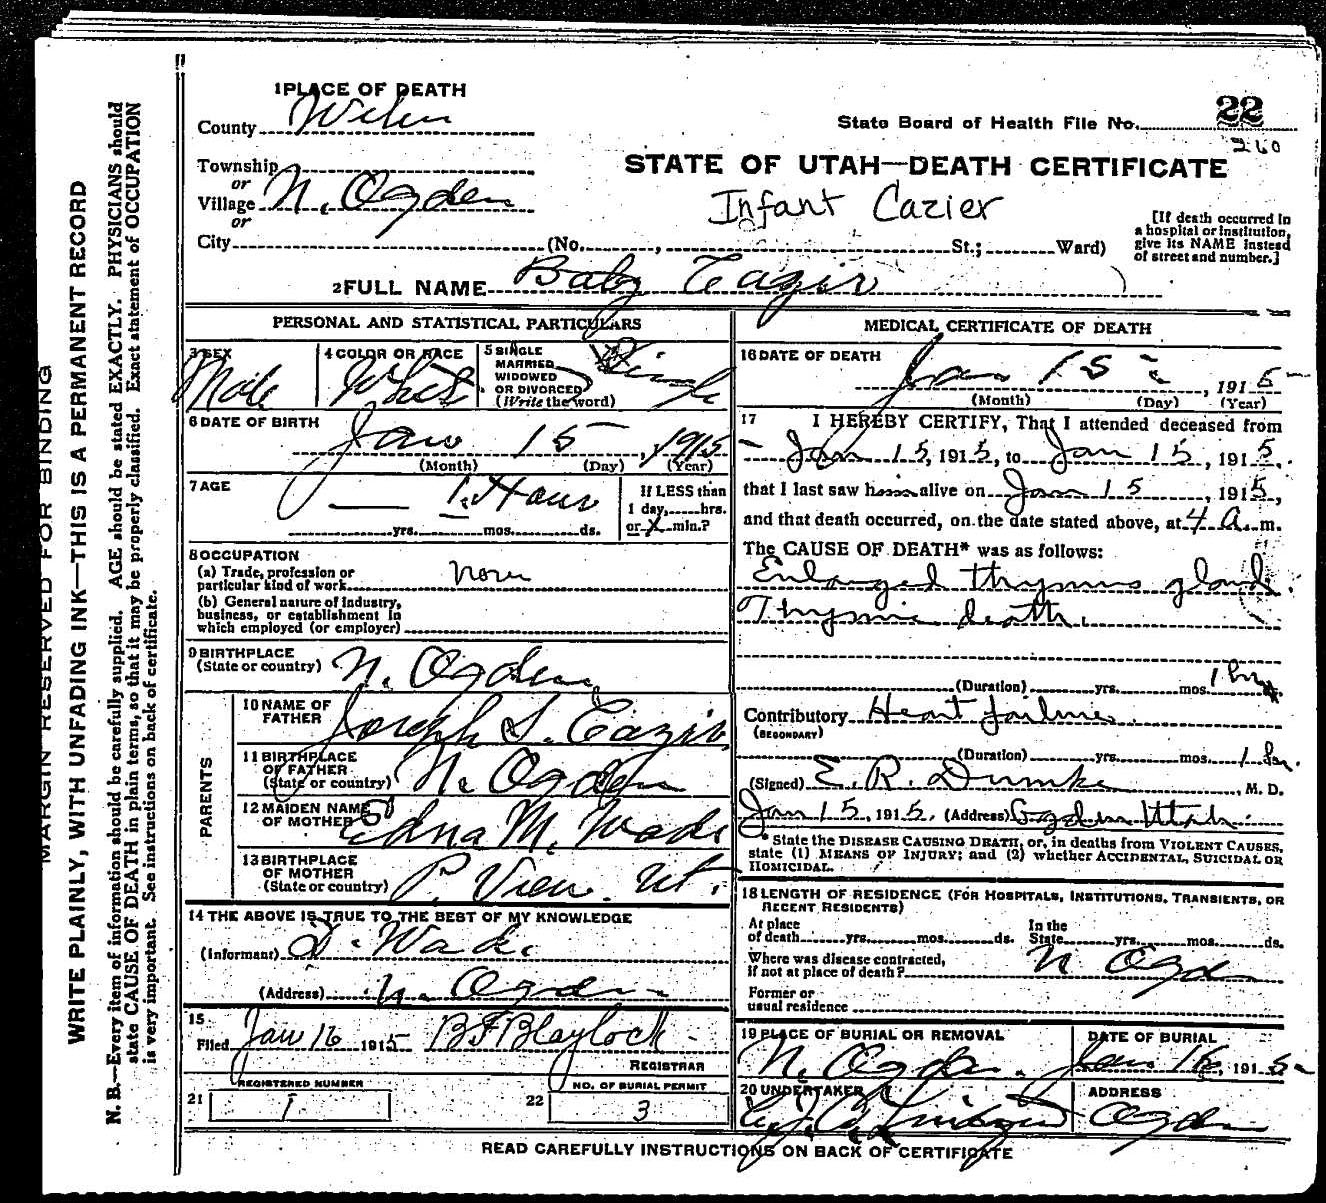 MARGIN RESERVED FOR BINDING
WRITE PLAINLY, WITH UNFADING INK—THIS IS A PERMANENT RECORD
N. B.—Every item of information should be carefully supplied. AGE should be stated EXACTLY. PHYSICIANS should
state CAUSE OF DEATH in plain terms, so that it may be properly classified. Exact statement of OCCUPATION
is very important. See instructions on back of certificate.
1 PLACE OF DEATH
County
State Board of Health File No. 22
260
STATE OF UTAH—DEATH CERTIFICATE
Township
or
Village N. Ogden
or
Infant Cazier
[If death occurred in
a hospital or institution,
give its NAME instead
of street and number.]
City (No. , St.; Ward)
2 FULL NAME Baby Cazier
PERSONAL AND STATISTICAL PARTICULARS
3 SEX
Male
4 COLOR OR RACE
White
5 SINGLE
MARRIED
WIDOWED
OR DIVORCED
(Write the word)
Single
6 DATE OF BIRTH
Jan 15, 1915
(Month) (Day) (Year)
7 AGE
— 1 Hour
yrs. mos. ds.
If LESS than
1 day, hrs.
or X min.?
8 OCCUPATION
(a) Trade, profession or
particular kind of work None
(b) General nature of industry,
business, or establishment in
which employed (or employer)
9 BIRTHPLACE
(State or country) N. Ogden
PARENTS
10 NAME OF
FATHER Joseph S. Cazier
11 BIRTHPLACE
OF FATHER
(State or country) N. Ogden
12 MAIDEN NAME
OF MOTHER Edna M. Wade
13 BIRTHPLACE
OF MOTHER
(State or country) P. View Ut.
14 THE ABOVE IS TRUE TO THE BEST OF MY KNOWLEDGE
(Informant) D. Wade
(Address) N. Ogden
15
Filed Jan 16 1915 B F Blaylock
REGISTRAR
21 REGISTERED NUMBER
1
22 NO. OF BURIAL PERMIT
3
MEDICAL CERTIFICATE OF DEATH
16 DATE OF DEATH
Jan 15, 1915
(Month) (Day) (Year)
17 I HEREBY CERTIFY, That I attended deceased from
Jan 15, 1915, to Jan 15, 1915,
that I last saw him alive on Jan 15, 1915,
and that death occurred, on the date stated above, at 4 A. m.
The CAUSE OF DEATH* was as follows:
Enlarged thymus gland.
Thymic death.
(Duration) yrs. mos. 1 hr ds.
Contributory Heart failure.
(SECONDARY)
(Duration) yrs. mos. 1 hr.
(Signed) E. R. Dumke, M. D.
Jan 15, 1915. (Address) Ogden Utah.
* State the DISEASE CAUSING DEATH, or, in deaths from VIOLENT CAUSES,
state (1) MEANS OF INJURY; and (2) whether ACCIDENTAL, SUICIDAL OR
HOMICIDAL.
18 LENGTH OF RESIDENCE (FOR HOSPITALS, INSTITUTIONS, TRANSIENTS, OR
RECENT RESIDENTS)
At place
of death yrs. mos. ds.
In the
State yrs. mos. ds.
Where was disease contracted,
if not at place of death? N Ogden
Former or
usual residence
19 PLACE OF BURIAL OR REMOVAL
N. Ogden.
DATE OF BURIAL
Jan 16, 1915
20 UNDERTAKER
ADDRESS
Ogden
READ CAREFULLY INSTRUCTIONS ON BACK OF CERTIFICATE